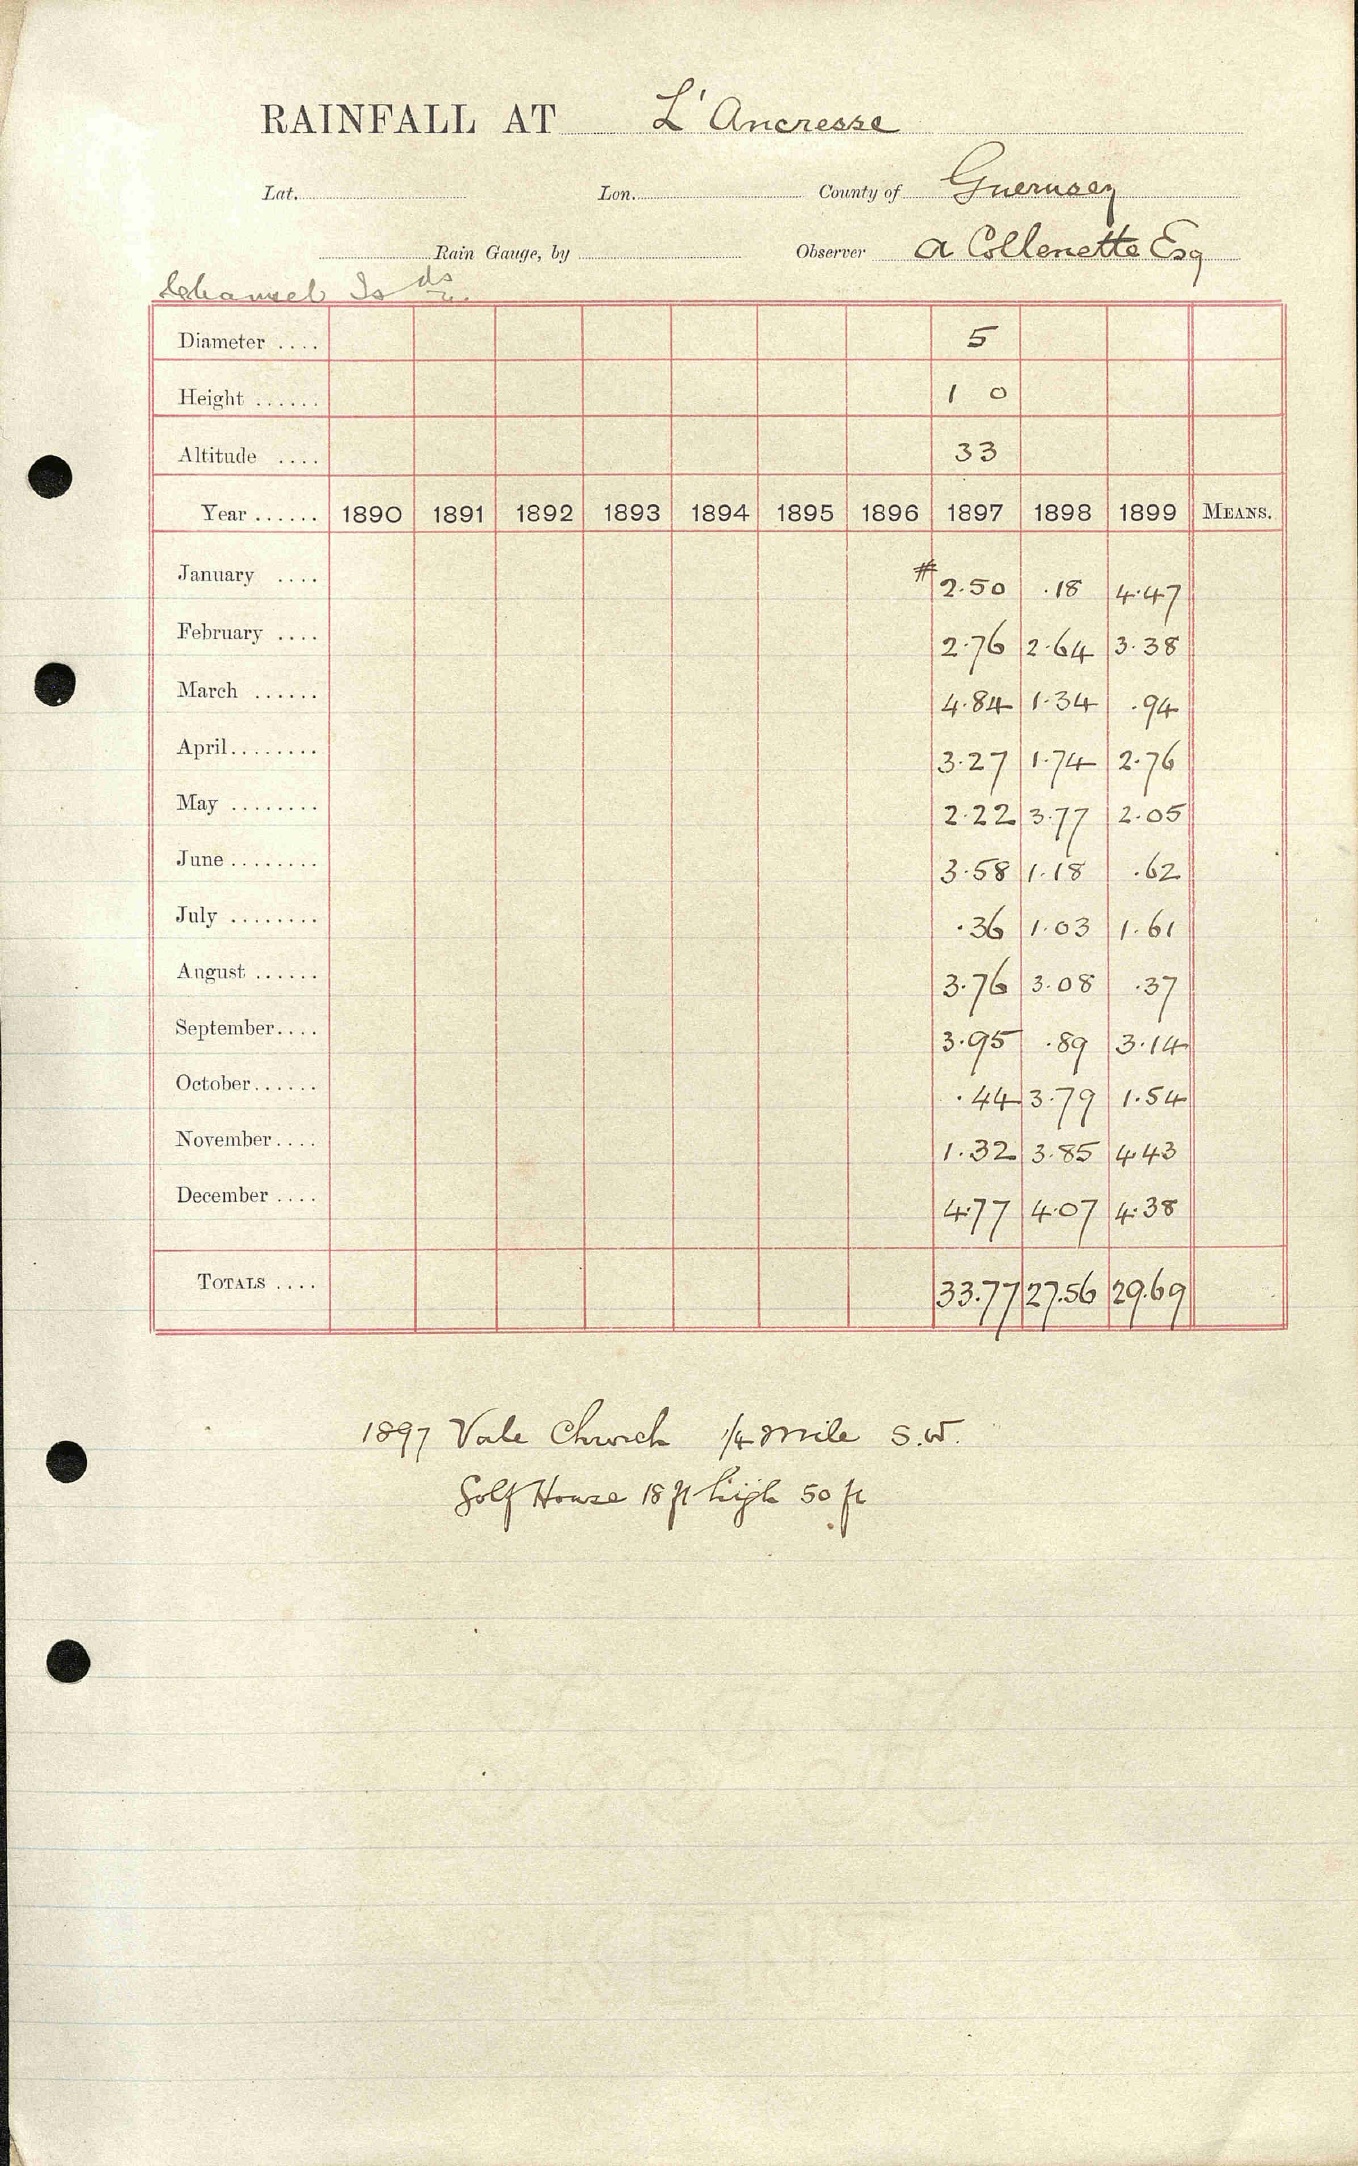 RAINFALL AT L'Ancresse
Lat. Lon. County of Guernsey
Rain Gauge, by Observer A Collenette Esq
Channel Is ds
Diameter .... 5
Height ...... 1 0
Altitude .... 33
Year ...... 1890 1891 1892 1893 1894 1895 1896 1897 1898 1899 MEANS.
January .... # 2.50 .18 4.47
February .... 2.76 2.64 3.38
March ...... 4.84 1.34 .94
April ........ 3.27 1.74 2.76
May ........ 2.22 3.77 2.05
June ........ 3.58 1.18 .62
July ........ .36 1.03 1.61
August ...... 3.76 3.08 .37
September .... 3.95 .89 3.14
October ...... .44 3.79 1.54
November .... 1.32 3.85 4.43
December .... 4.77 4.07 4.38
TOTALS .... 33.77 27.56 29.69
1897 Vale Church 1/4 mile S.W.
Golf House 18 ft high 50 ft